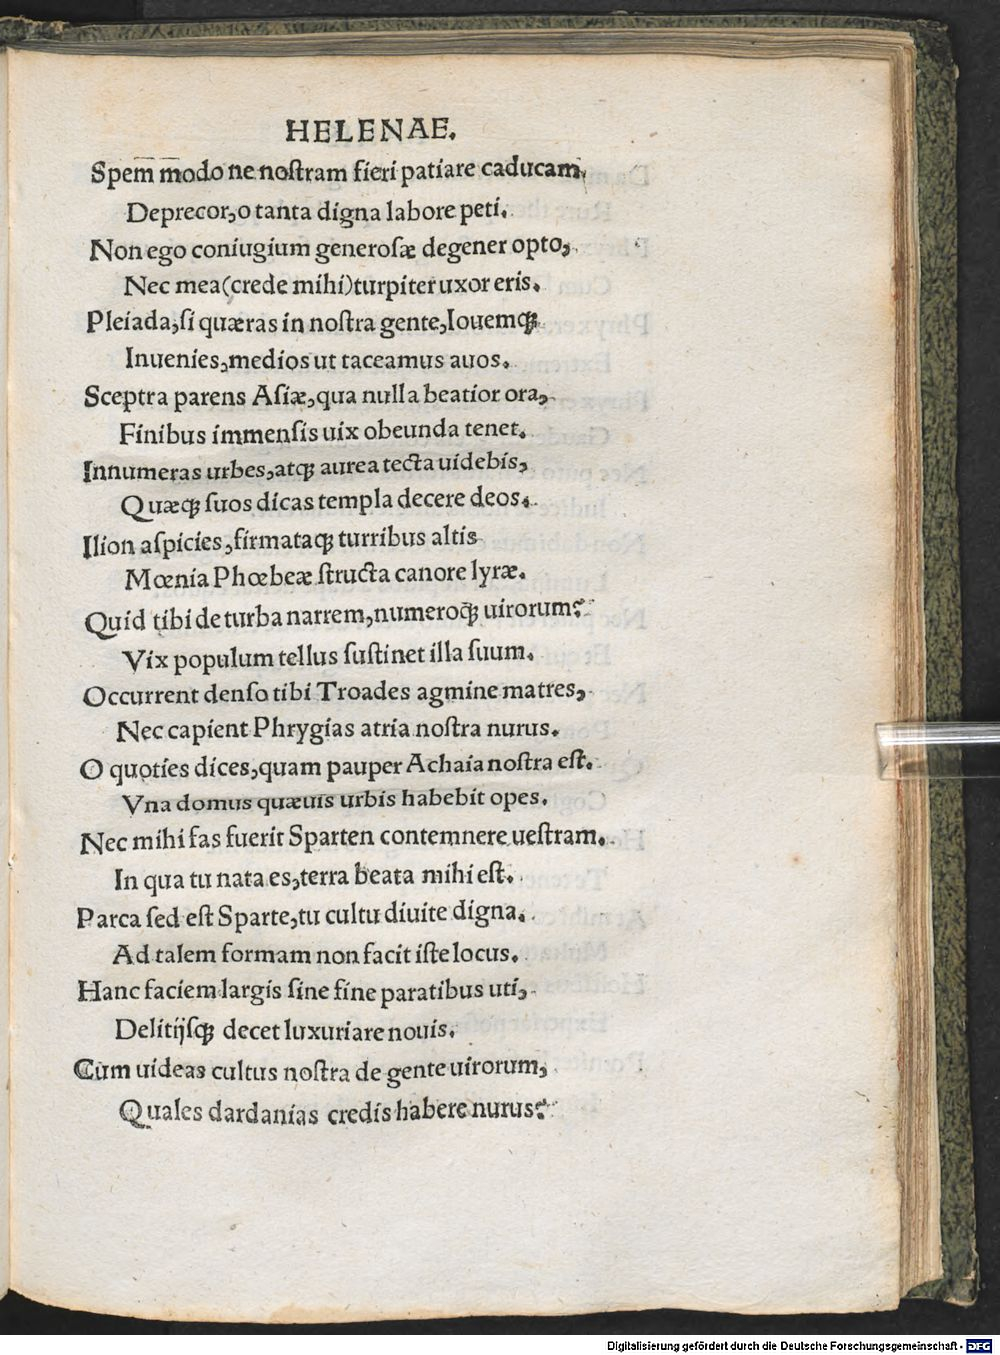 HELENAE.
Spem modo ne noſtram fieri patiare caducam,
Deprecor,o tanta digna labore peti.
Non ego coniugium generoſæ degener opto,
Nec mea(crede mihi)turpiter uxor eris.
Pleiada,ſi quæras in noſtra gente,Iouemq;
Inuenies,medios ut taceamus auos.
Sceptra parens Aſiæ,qua nulla beatior ora,
Finibus immenſis uix obeunda tenet.
Innumeras urbes,atq; aurea tecta uidebis,
Quæq; ſuos dicas templa decere deos.
Ilion aſpicies,firmataq; turribus altis
Mœnia Phœbeæ ſtructa canore lyræ.
Quid tibi de turba narrem,numeroq; uirorum?
Vix populum tellus ſuſtinet illa ſuum.
Occurrent denſo tibi Troades agmine matres,
Nec capient Phrygias atria noſtra nurus.
O quoties dices,quam pauper Achaia noſtra eſt.
Vna domus quæuis urbis habebit opes.
Nec mihi fas fuerit Sparten contemnere ueſtram.
In qua tu nata es,terra beata mihi eſt.
Parca ſed eſt Sparte,tu cultu diuite digna.
Ad talem formam non facit iſte locus.
Hanc faciem largis ſine fine paratibus uti,
Delitijſq; decet luxuriare nouis.
Cum uideas cultus noſtra de gente uirorum,
Quales dardanias credis habere nurus?
Digitalisierung gefördert durch die Deutsche Forschungsgemeinschaft - DFG